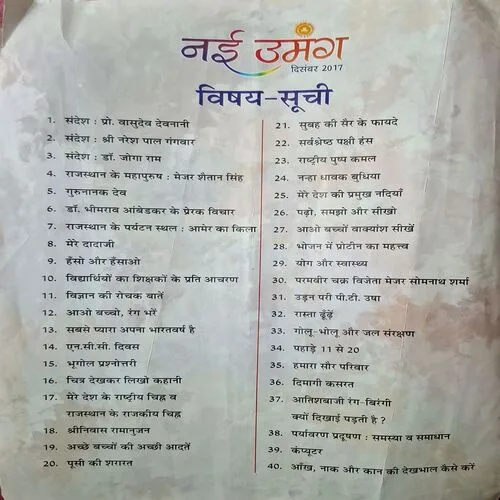 नई उमंग
दिसंबर 2017
विषय-सूची
1. संदेश : प्रो. वासुदेव देवनानी
2. संदेश : श्री नरेश पाल गंगवार
3. संदेश : डॉ. जोगा राम
4. राजस्थान के महापुरुष : मेजर शैतान सिंह
5. गुरुनानक देव
6. डॉ. भीमराव आंबेडकर के प्रेरक विचार
7. राजस्थान के पर्यटन स्थल : आमेर का किला
8. मेरे दादाजी
9. हँसो और हँसाओ
10. विद्यार्थियों का शिक्षकों के प्रति आचरण
11. विज्ञान की रोचक बातें
12. आओ बच्चो, रंग भरें
13. सबसे प्यारा अपना भारतवर्ष है
14. एन.सी.सी. दिवस
15. भूगोल प्रश्नोत्तरी
16. चित्र देखकर लिखो कहानी
17. मेरे देश के राष्ट्रीय चिह्न व
राजस्थान के राजकीय चिह्न
18. श्रीनिवास रामानुजन
19. अच्छे बच्चों की अच्छी आदतें
20. पूसी की शरारत
21. सुबह की सैर के फायदे
22. सर्वश्रेष्ठ पक्षी हंस
23. राष्ट्रीय पुष्प कमल
24. नन्हा धावक बुधिया
25. मेरे देश की प्रमुख नदियाँ
26. पढ़ो, समझो और सीखो
27. आओ बच्चों वाक्यांश सीखें
28. भोजन में प्रोटीन का महत्त्व
29. योग और स्वास्थ्य
30. परमवीर चक्र विजेता मेजर सोमनाथ शर्मा
31. उड़न परी पी.टी. उषा
32. रास्ता ढूंढ़ें
33. गोलू-भोलू और जल संरक्षण
34. पहाड़े 11 से 20
35. हमारा सौर परिवार
36. दिमागी कसरत
37. आतिशबाजी रंग-बिरंगी
क्यों दिखाई पड़ती है ?
38. पर्यावरण प्रदूषण : समस्या व समाधान
39. कंप्यूटर
40. आँख, नाक और कान की देखभाल कैसे करें